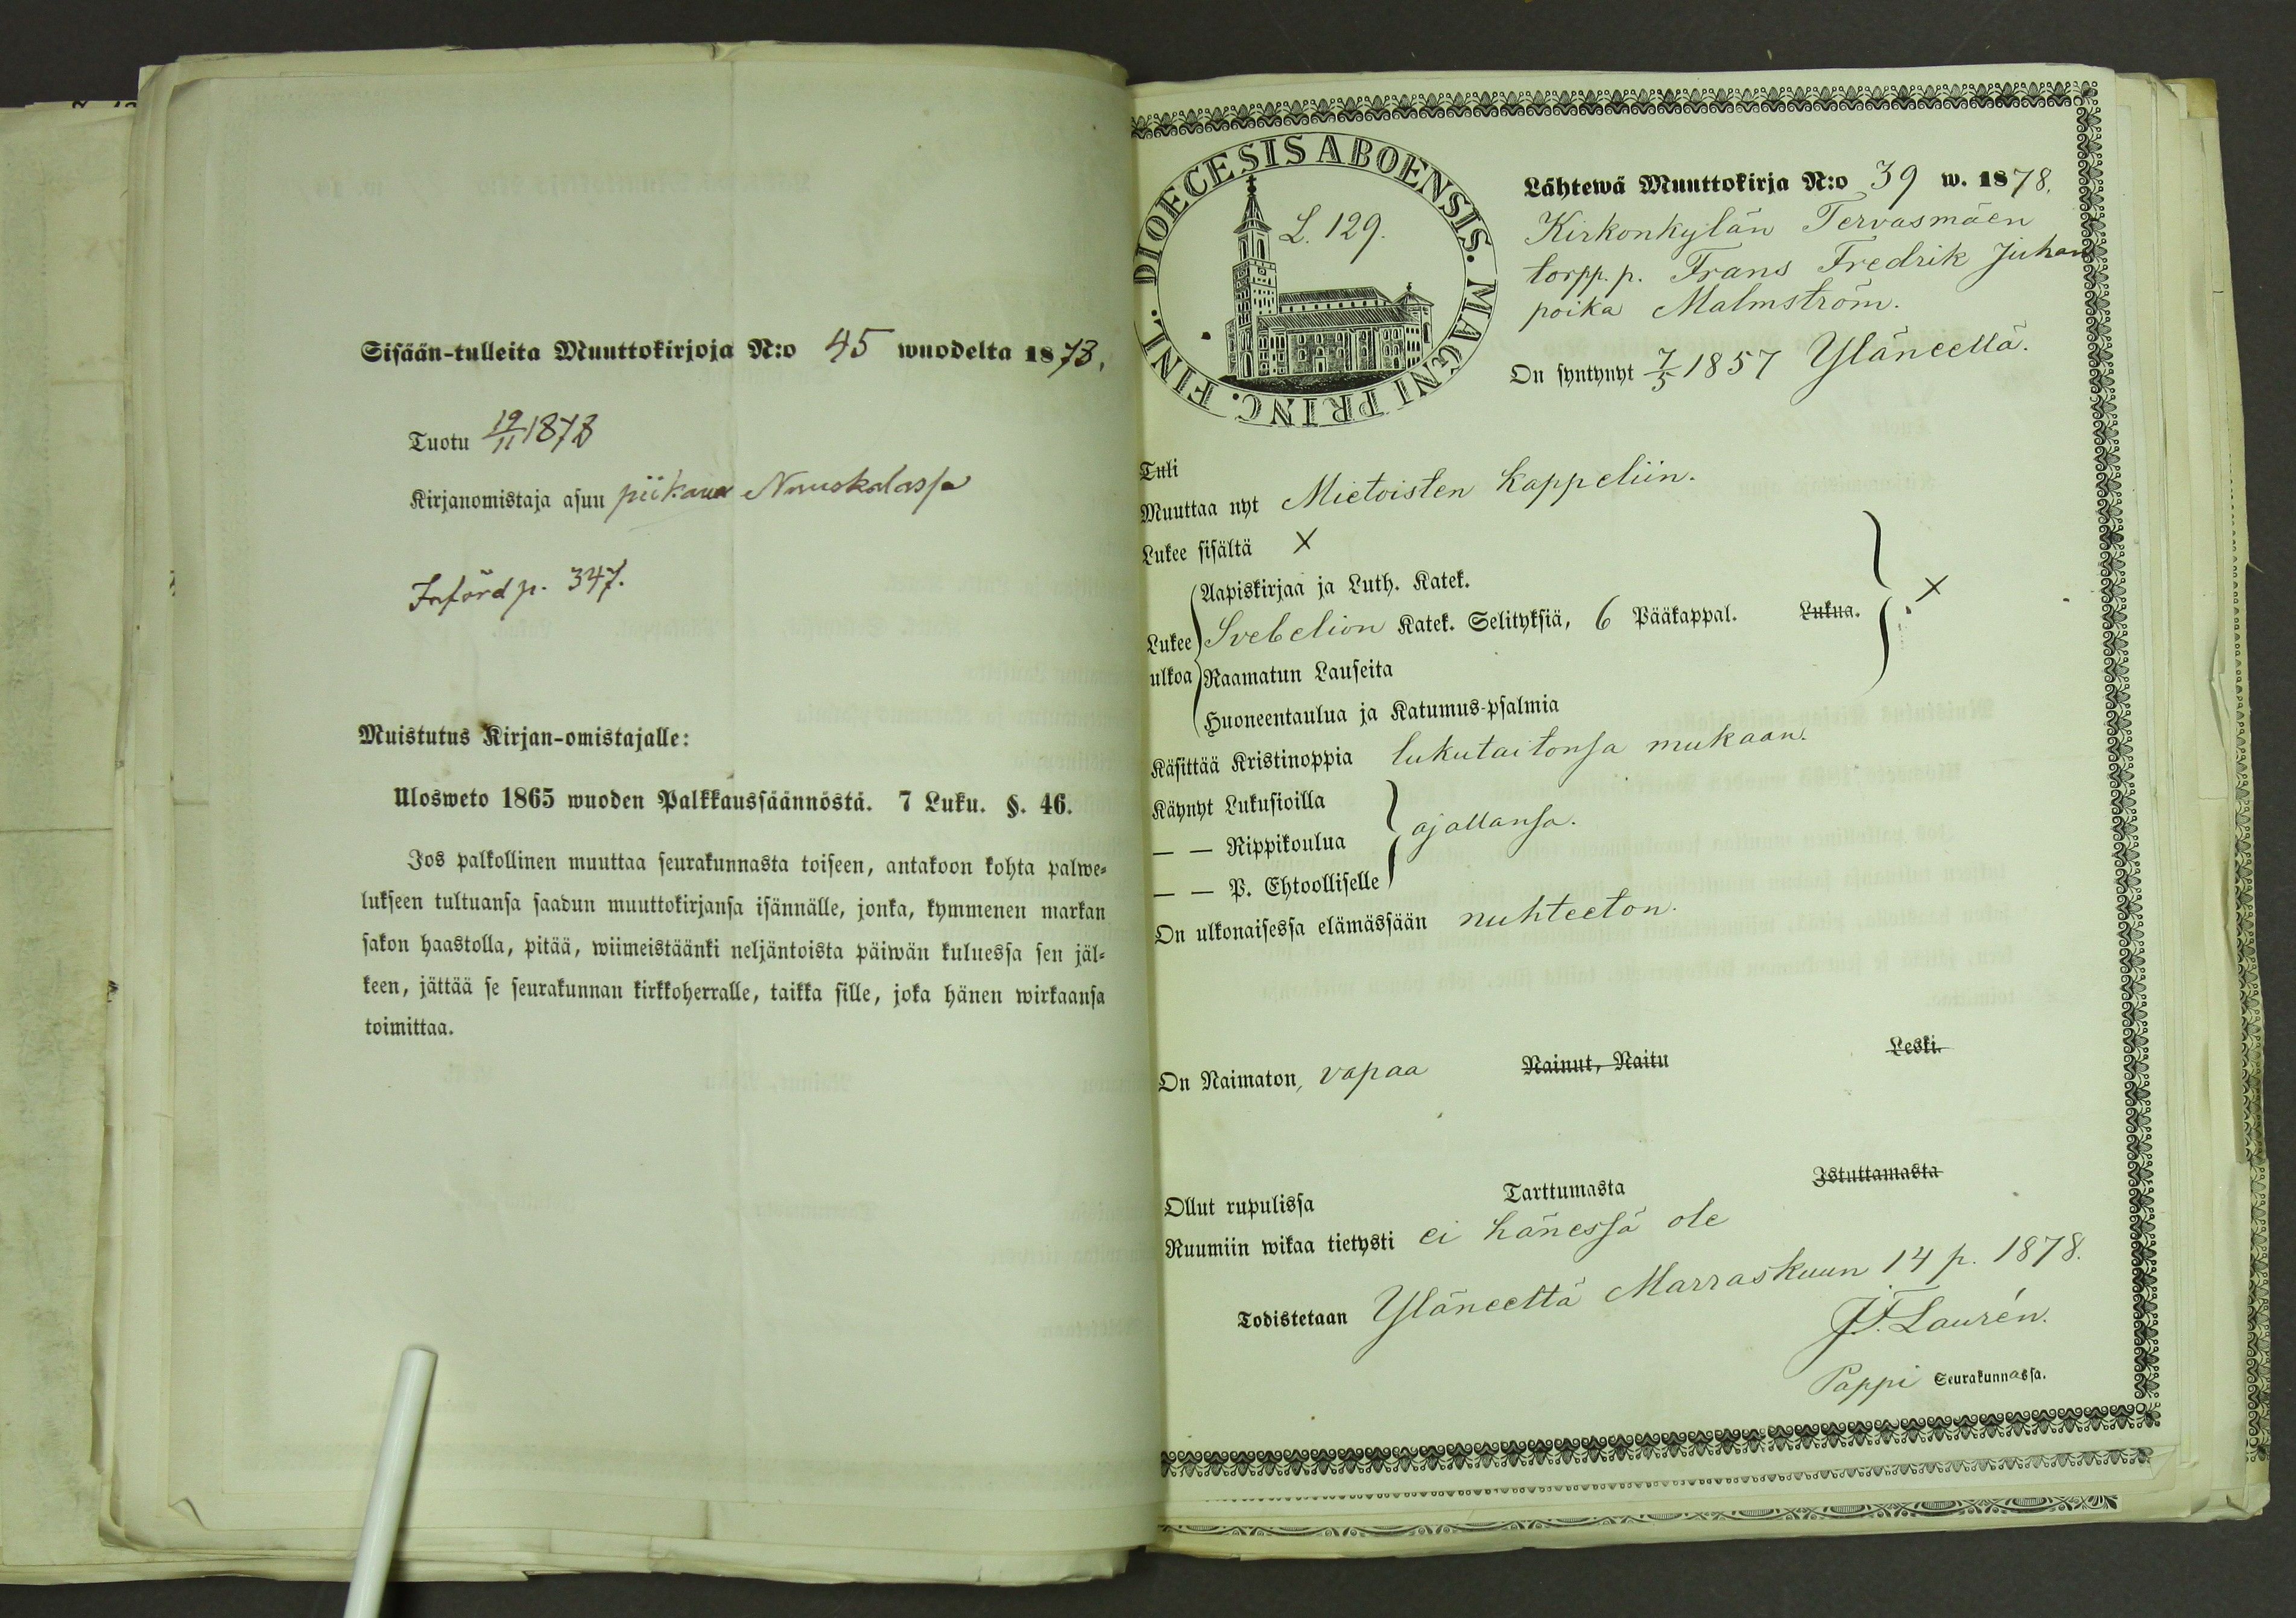 Sisään-tulleita Muuttokirjoja N:o 45 wuodelta 1878.
Tuotu 19/11 1878
Kirjanomistaja asuu piikana Nuuskalassa
Införd p. 347.
Muistutus Kirjan-omistajalle:
Ulosweto 1865 wuoden Palkkaussäännöstä. 7 Luku. §. 46.
Jos palkollinen muuttaa seurakunnasta toiseen, antakoon kohta palwe-
lukseen tultuansa saadun muuttokirjansa isännälle, jonka, kymmenen markan
sakon haastolla, pitää, wiimeistäänki neljäntoista päiwän kuluessa sen jäl-
keen, jättää se seurakunnan kirkkoherralle, taikka sille, joka hänen wirkaansa
toimittaa.
DIOECESIS ABOENSIS. MAGNI PRINC. FINL.
L. 129.
Lähtewä Muuttokirja N:o 39 w. 1878.
Kirkonkylän Tervasmäen
torpp. p. Frans Fredrik Juhan
poika Malmström.
On syntynyt 7/5 1857 Yläneellä.
Tuli
Muuttaa nyt Mietoisten kappeliin.
Lukee sisältä X
Lukee ulkoa
Aapiskirjaa ja Luth. Katek.
Svebelion Katek. Selityksiä, 6 Pääkappal. Lukua. X
Raamatun Lauseita
Huoneentaulua ja Katumus-psalmia
Käsittää Kristinoppia lukutaitonsa mukaan.
Käynyt Lukusioilla
— — Rippikoulua ajallansa.
— — P. Ehtoolliselle
On ulkonaisessa elämässään nuhteeton.
On Naimaton, vapaa Nainut, Naitu Leski.
Ollut rupulissa Tarttumasta Istuttamasta
Ruumiin wikaa tietysti ei hänessä ole
Todistetaan Yläneeltä Marraskuun 14 p. 1878.
J. F. Laurén.
Pappi Seurakunnassa.